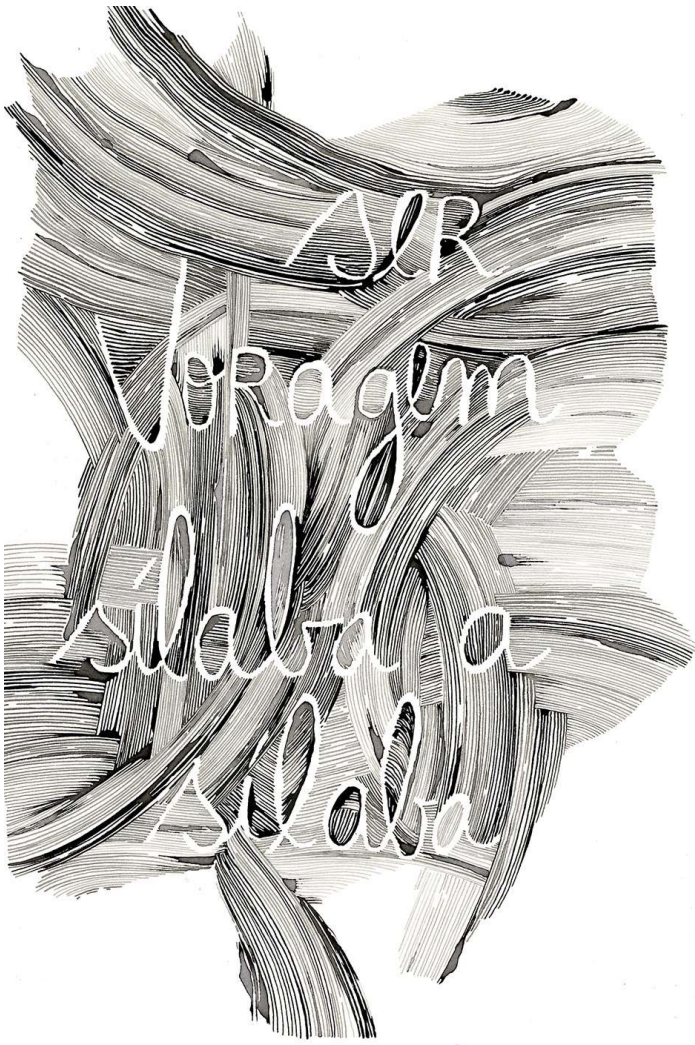 SER
Voragem
sílaba a
sílaba